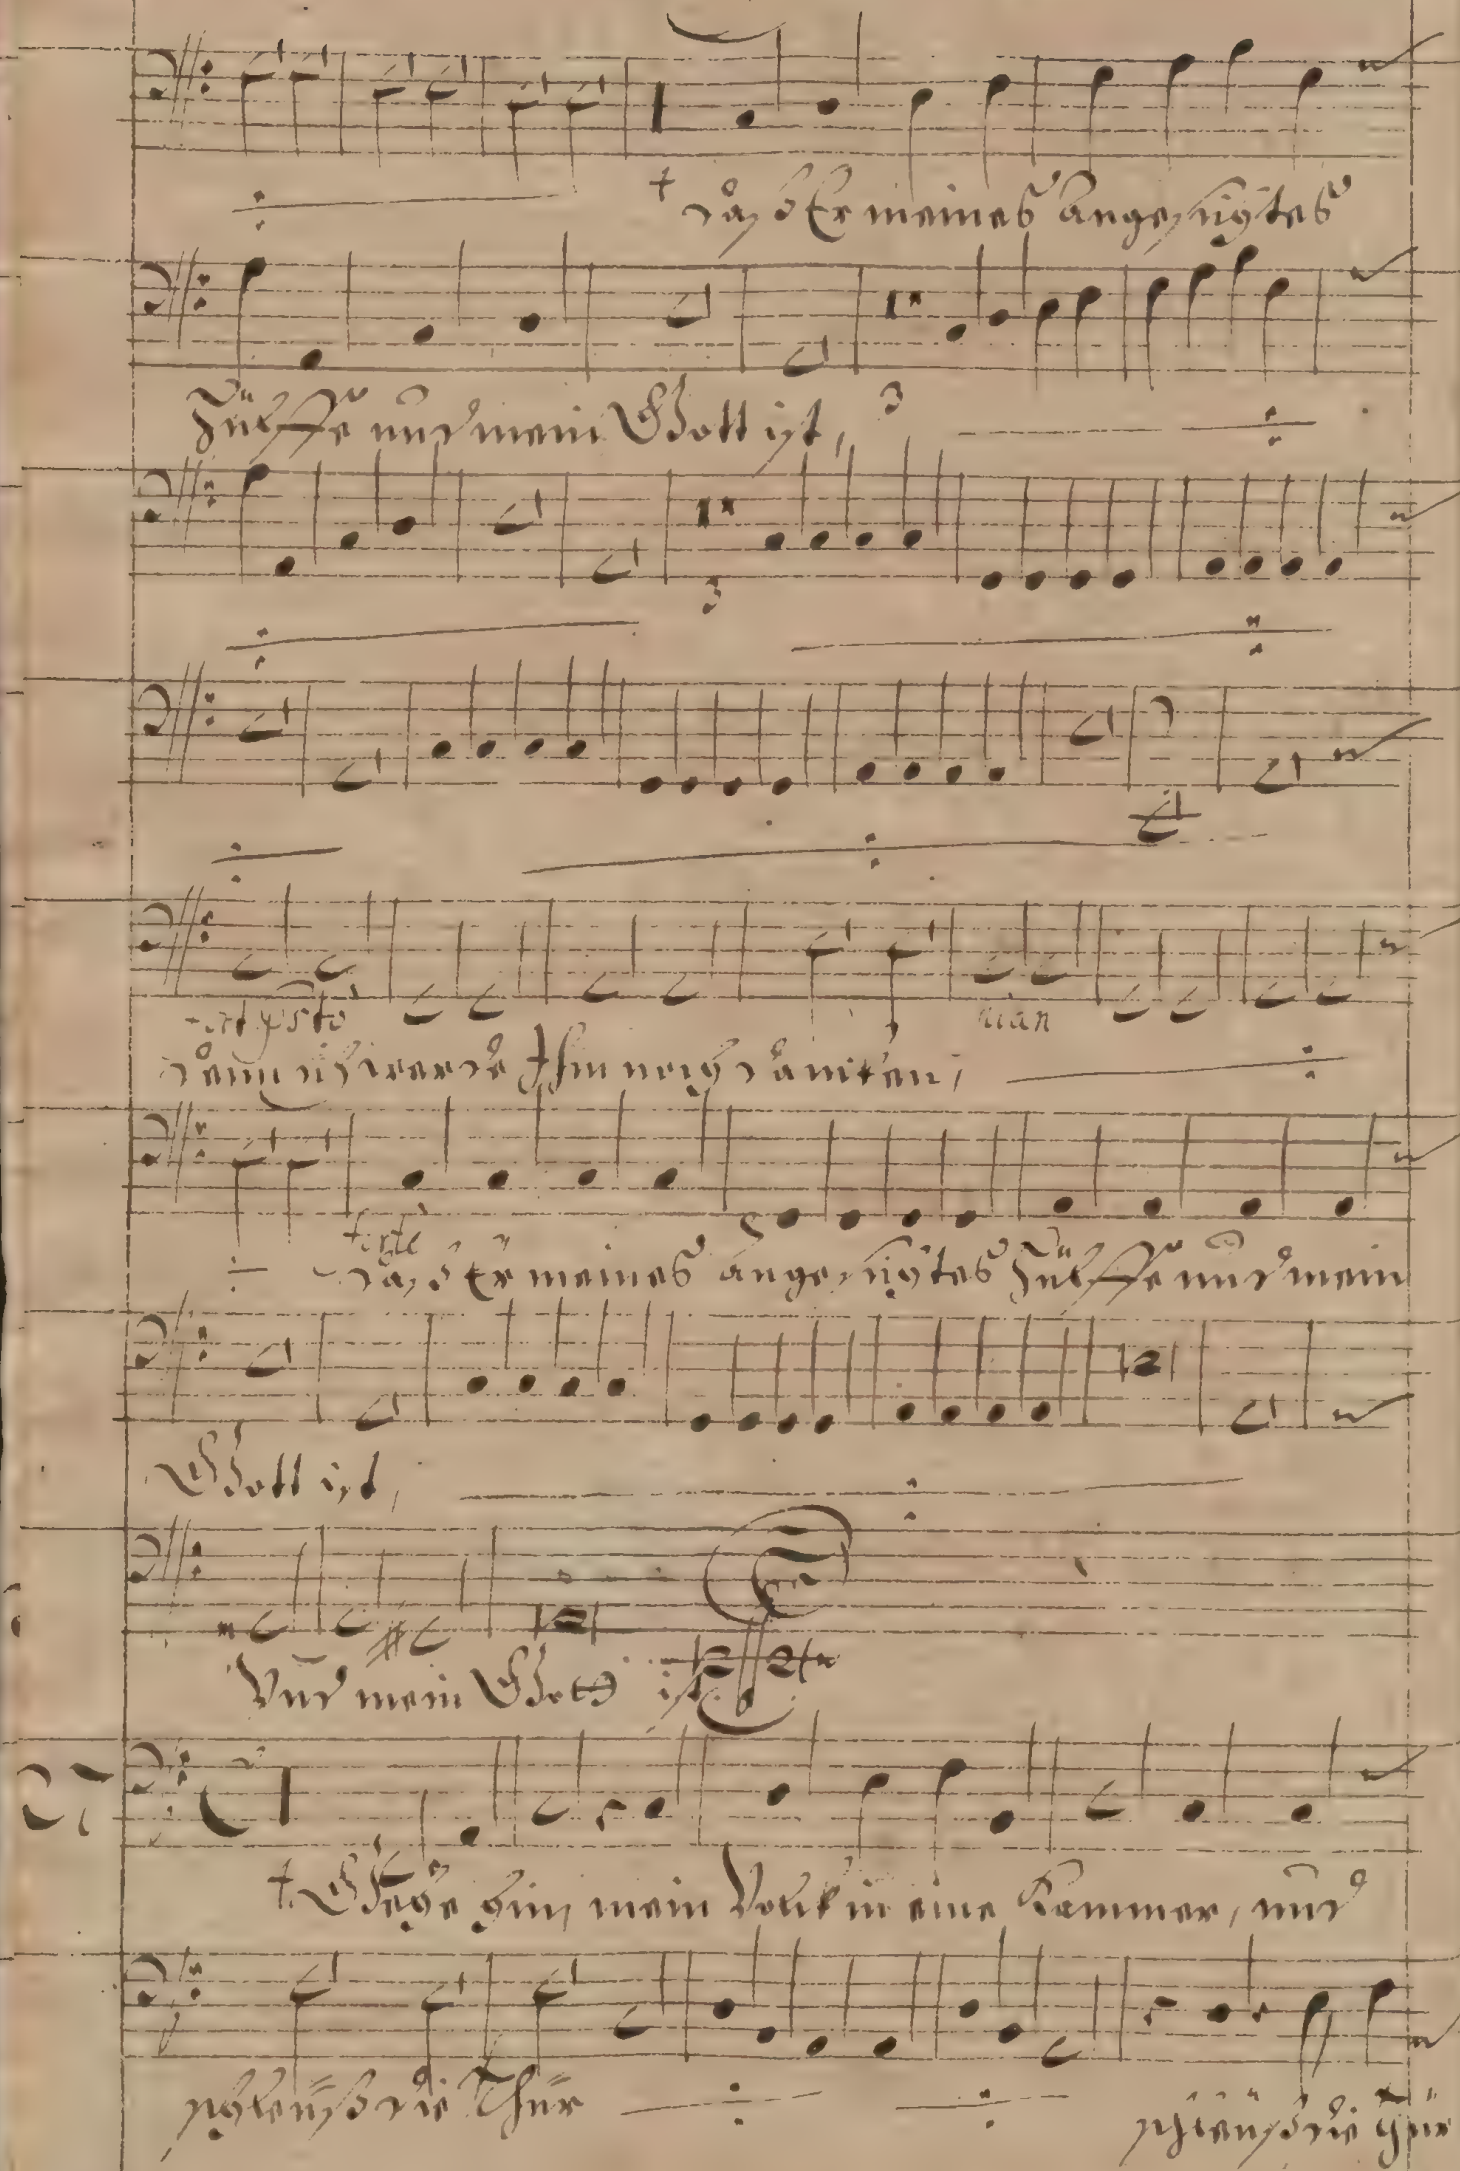 daß Er meines Angesichtes
3
Hülffe und mein Gott ist,
3
denn ich werde Ihm noch dancken,
pian
forte
daß Er meines angesichtes Hülffe und mein
Gott ist,
Und mein Gott ist.
Gehe hin, mein Volck in eine Kammer, und
schleuß die Thür
schleuß die Thür